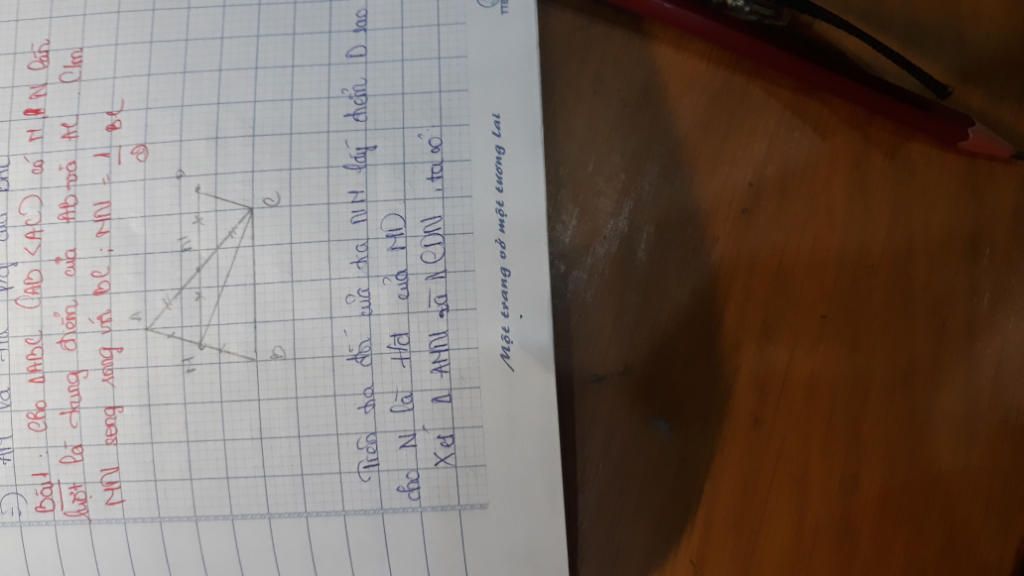 Bài 1: Cho ΔABC (AB < AC) có M, N lần
lượt là trung điểm của AB và AC Cm
MN song song với BC; MN = 1/2 BC
A
M
N
D
B
C
Trên tia đối của tia NM lấy điểm D sao
cho N là trung điểm của MD
Xét Δ AMN và ΔCDN, ta có
Một trang vở một tương lai